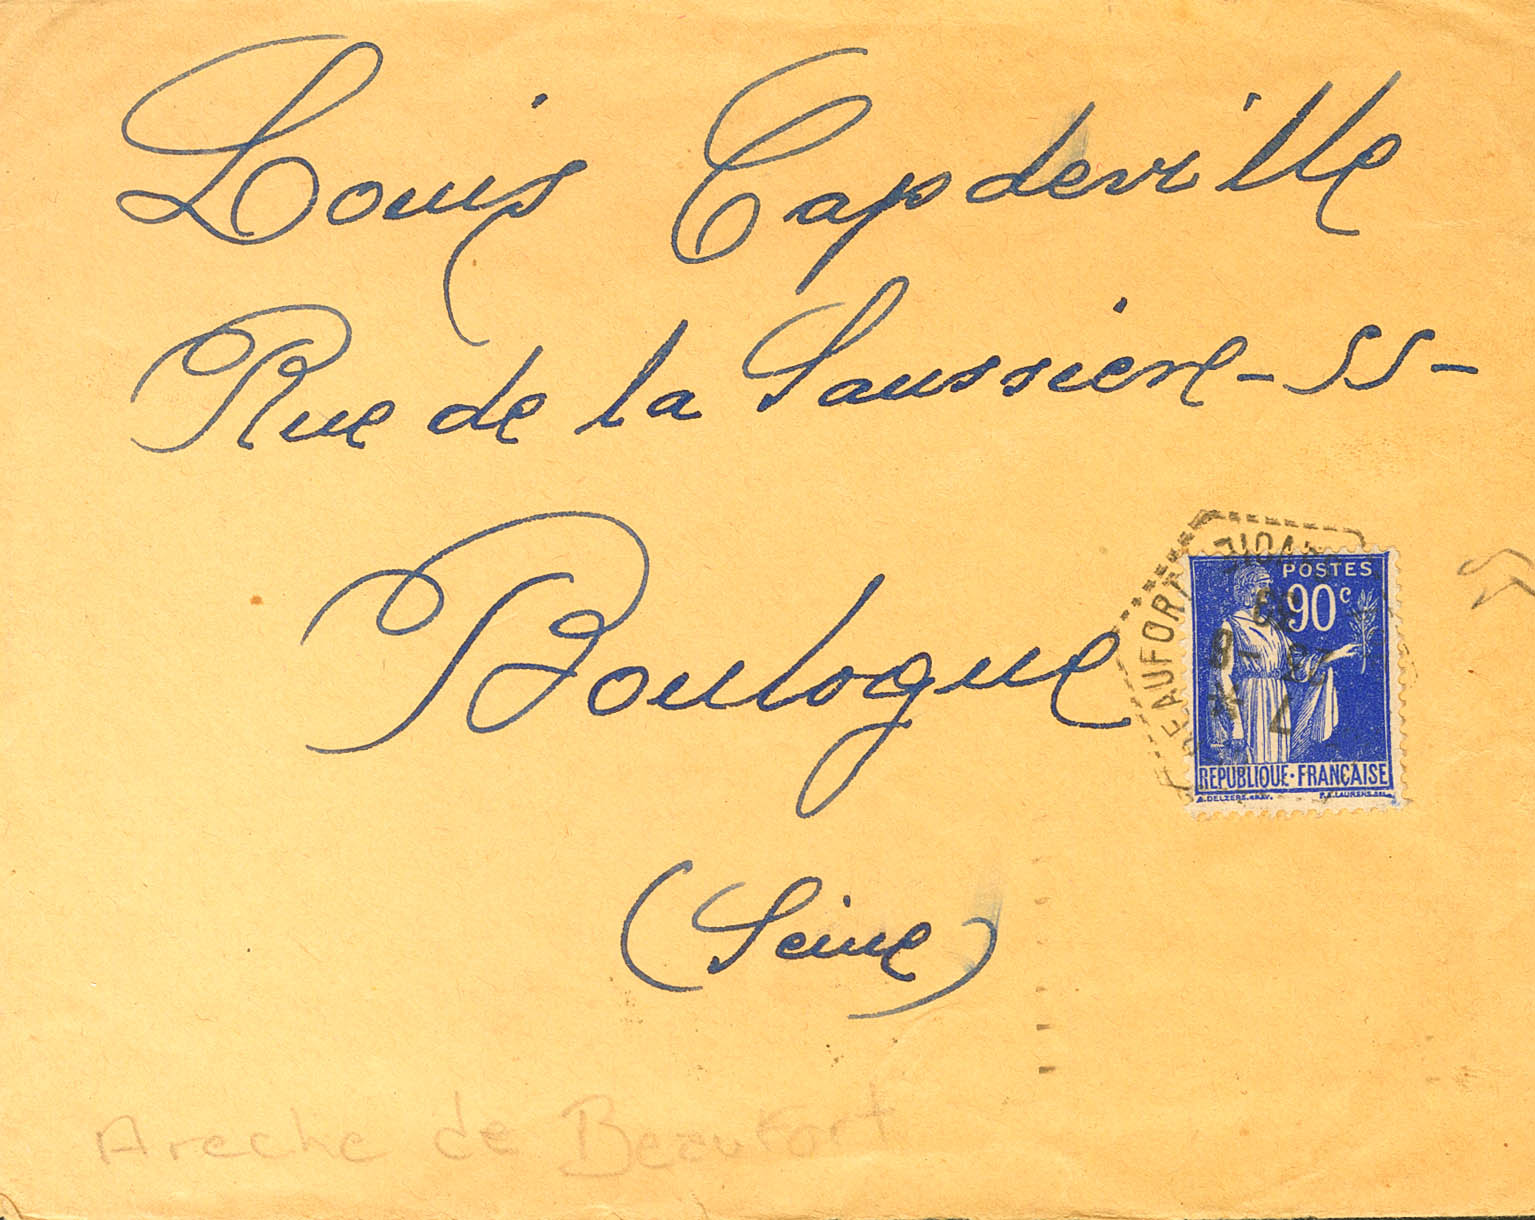 Louis Capdeville
Rue de la Saussière - 55 -
Boulogne
(Seine)
POSTES
90c
REPUBLIQUE·FRANÇAISE
BEAUFORT
Areche de Beaufort